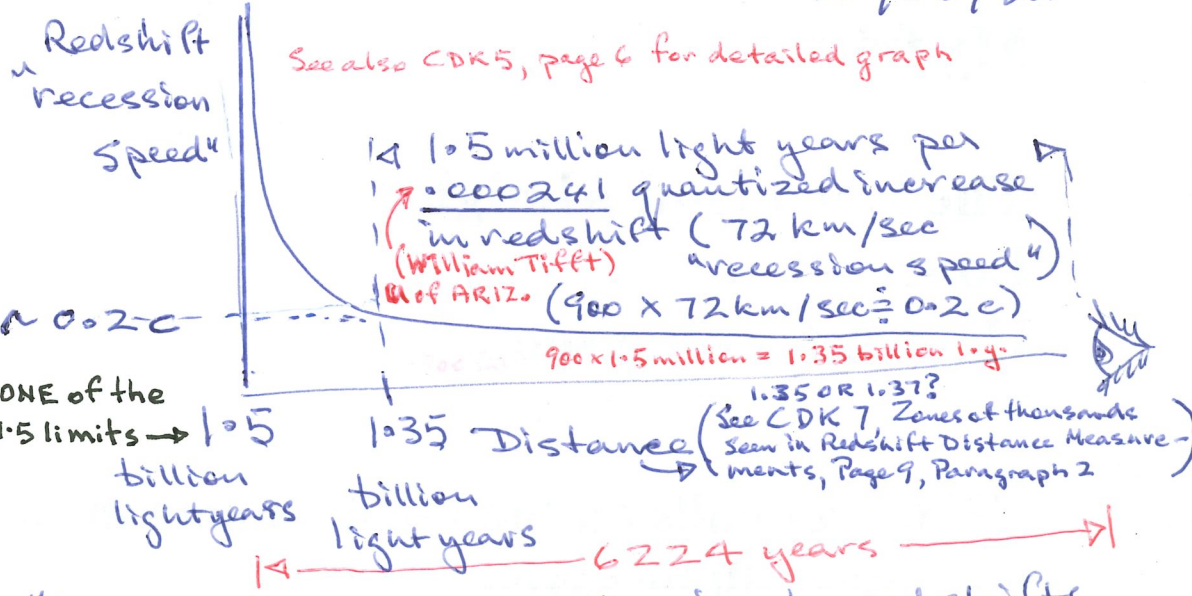 Redshift
"recession
speed"
See also CDK5, page 6 for detailed graph
1.5 million light years per
.000241 quantized increase
in redshift (72 km/sec
"recession speed")
(William Tifft)
U of ARIZ.
(900 x 72 km/sec ≐ 0.2 c)
~ 0.2 c
900 x 1.5 million = 1.35 billion l.y.
1.35 OR 1.37?
ONE of the
1.5 limits → 1.5
billion
lightyears
1.35
billion
light years
Distance
(See CDK 7, Zones of thousands
seen in Redshift Distance Measure-
ments, Page 9, Paragraph 2)
6224 years